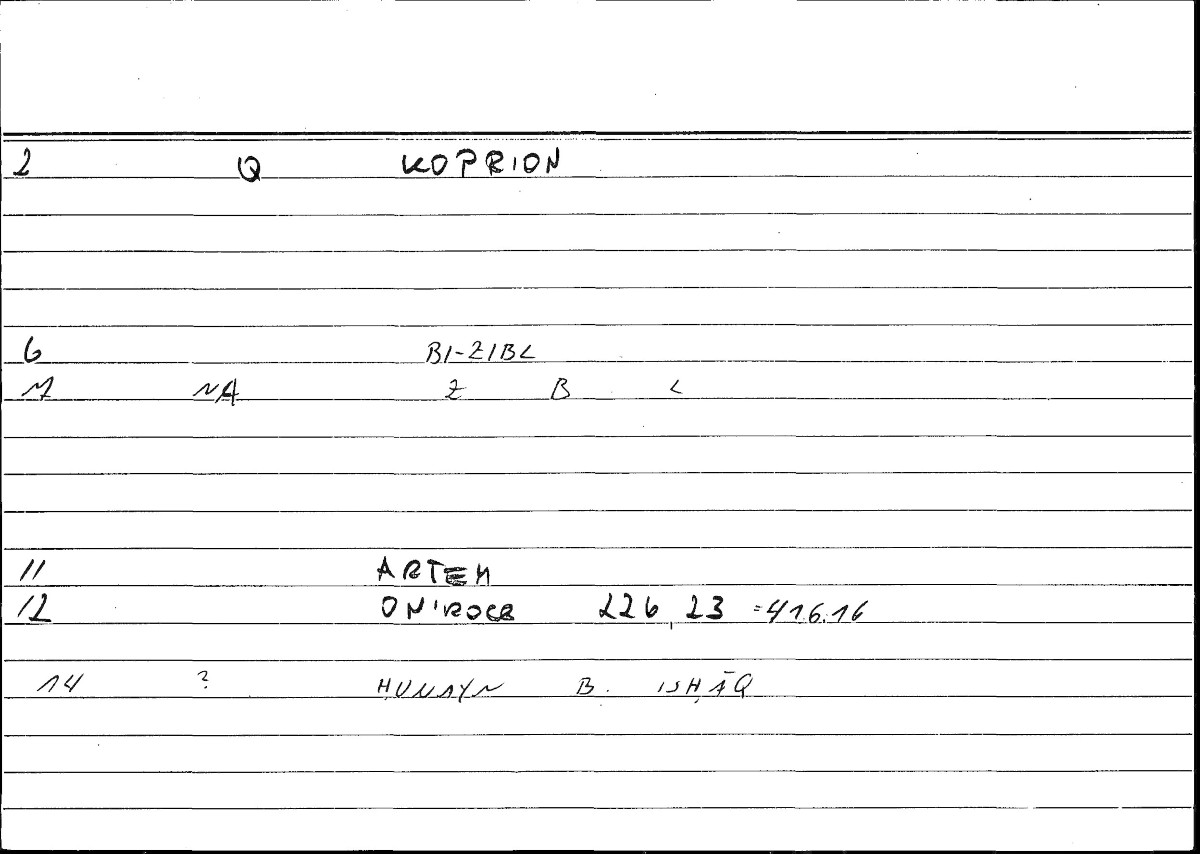 2 Q KOPRION
6 BI-ZIBL
M NA Z B L
11 ARTEM
12 ONIROCR 226, 23 =416.16
14 ? ḤUNAYN B. ISḤĀQ